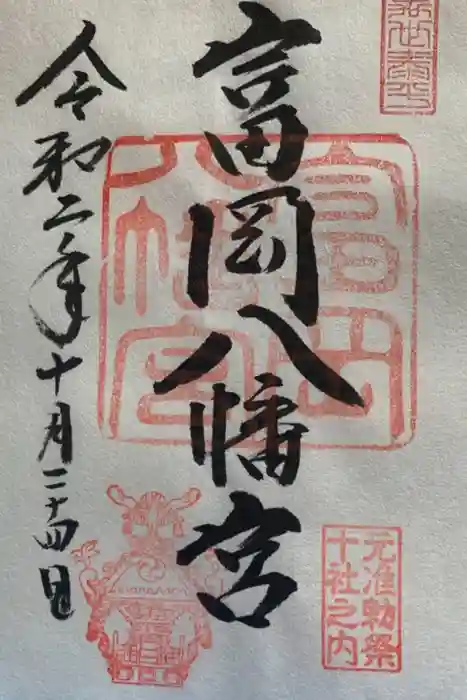 天下泰平
富岡八幡宮
元准勅祭
十社之内
令和二年十月二十四日